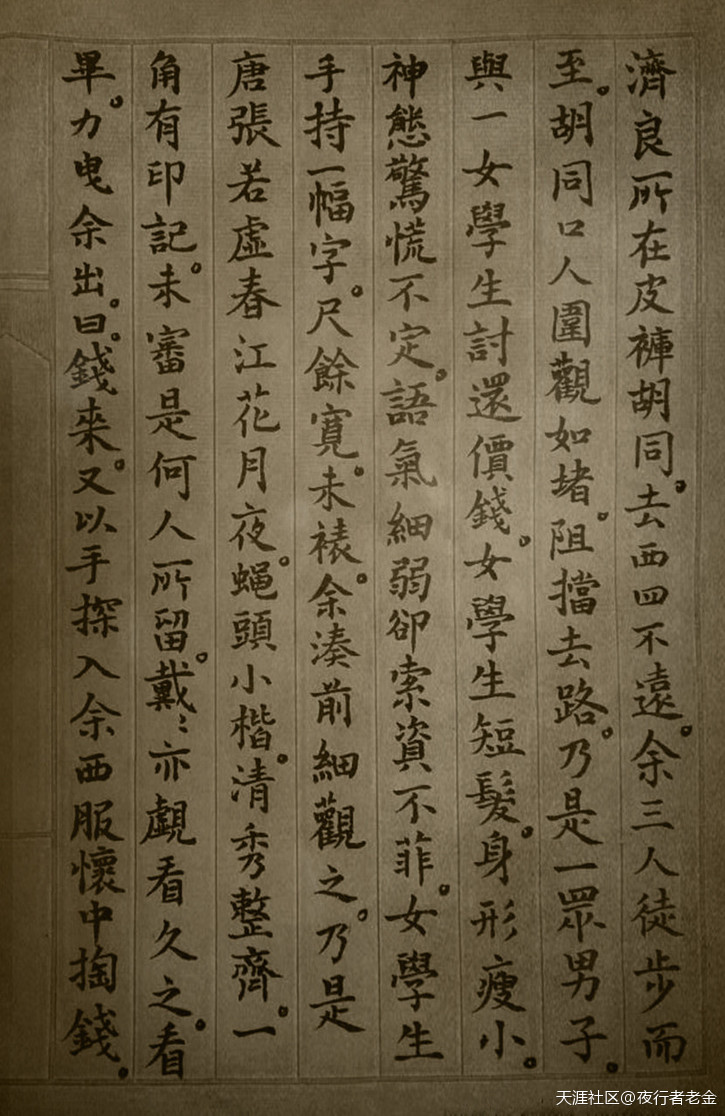 濟良所在皮褲胡同。去西四不遠。余三人徒步而
至。胡同口人圍觀如堵。阻擋去路。乃是一眾男子。
與一女學生討還價錢。女學生短髮。身形瘦小。
神態驚慌不定。語氣細弱卻索資不菲。女學生
手持一幅字。尺餘寬。未裱。余湊前細觀之。乃是
唐張若虛春江花月夜。蝇頭小楷。清秀整齊。一
角有印記。未審是何人所留。戴〻亦覷看久之。看
畢。力曳余出。曰。錢來。又以手探入余西服懷中掏錢。
天涯社区@夜行者老金